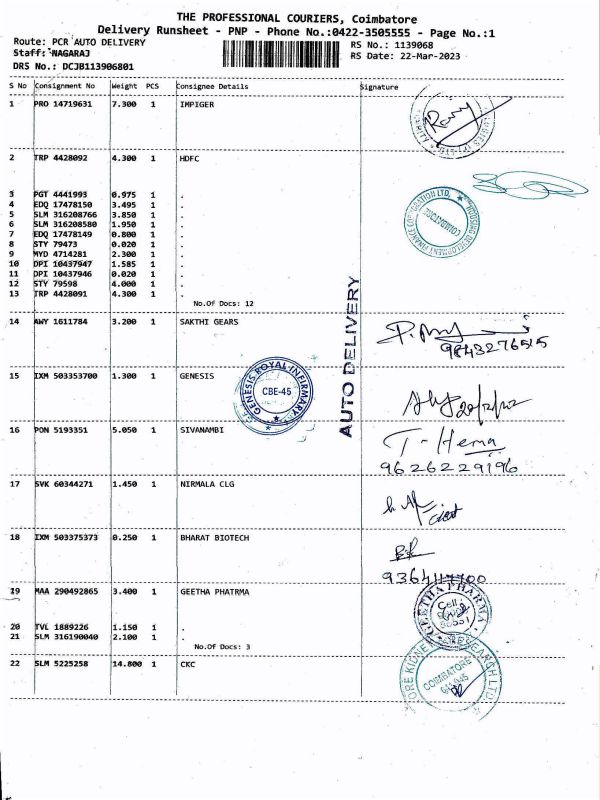 THE PROFESSIONAL COURIERS, Coimbatore
Delivery Runsheet - PNP - Phone No.:0422-3505555 - Page No.:1
Route: PCR AUTO DELIVERY RS No.: 1139068
Staff: NAGARAJ RS Date: 22-Mar-2023
DRS No.: DCJB113906801
S No Consignment No Weight PCS Consignee Details Signature
1 PRO 14719631 7.300 1 IMPIGER
2 TRP 4428092 4.300 1 HDFC
3 PGT 4441993 0.975 1 .
4 EDQ 17478150 3.495 1 .
5 SLM 316208766 3.850 1 .
6 SLM 316208580 1.950 1 .
7 EDQ 17478149 0.800 1 .
8 STY 79473 0.020 1 .
9 MYD 4714281 2.300 1 .
10 DPI 10437947 1.585 1 .
11 DPI 10437946 0.020 1 .
12 STY 79598 4.000 1 .
13 TRP 4428091 4.300 1 .
No.Of Docs: 12
HOUSING DEVELOPMENT FINANCE CORPORATION LTD.
COIMBATORE
AUTO DELIVERY
14 AWY 1611784 3.200 1 SAKTHI GEARS
9843276515
15 IXM 503353700 1.300 1 GENESIS
GENESIS ROYAL INFIRMARY
CBE-45
16 PON 5193351 5.050 1 SIVANAMBI
T-Hema
9626229196
17 SVK 60344271 1.450 1 NIRMALA CLG
18 IXM 503375373 0.250 1 BHARAT BIOTECH
19 MAA 290492865 3.400 1 GEETHA PHATRMA
GEETHA PHARMA
20 TVL 1889226 1.150 1 .
21 SLM 316190040 2.100 1 .
No.Of Docs: 3
22 SLM 5225258 14.800 1 CKC
COIMBATORE